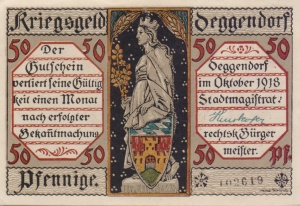 Kriegsgeld Deggendorf
50 50 50 50
Der
Gutschein
verliert seine Gültig
keit einen Monat
nach erfolgter
Bekañtmachung
Deggendorf
im Oktober 1918
Stadtmagistrat:
rechtsk. Bürger
meister.
50 50 50 50
Pfennige. Pf.
102619